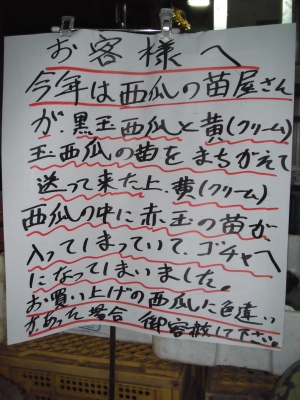 お客様へ
今年は西瓜の苗屋さん
が、黒玉西瓜と黄(クリーム)
玉西瓜の苗をまちがえて
送って来た上、黄(クリーム)
西瓜の中に赤玉の苗が
入ってしまっていて、ゴチャへ
になってしまいました。
お買い上げの西瓜に色違い
があった場合御容赦して下さい。